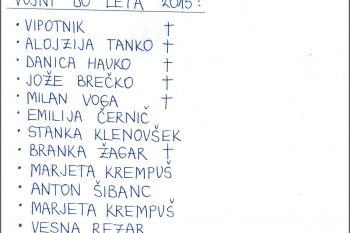 VOJNI DO LETA 2015:
• VIPOTNIK †
• ALOJZIJA TANKO †
• DANICA HAUKO †
• JOŽE BREČKO †
• MILAN VOGA †
• EMILIJA ČERNIČ
• STANKA KLENOVŠEK
• BRANKA ŽAGAR †
• MARJETA KREMPUŠ
• ANTON ŠIBANC
• MARJETA KREMPUŠ
• VESNA REZAR